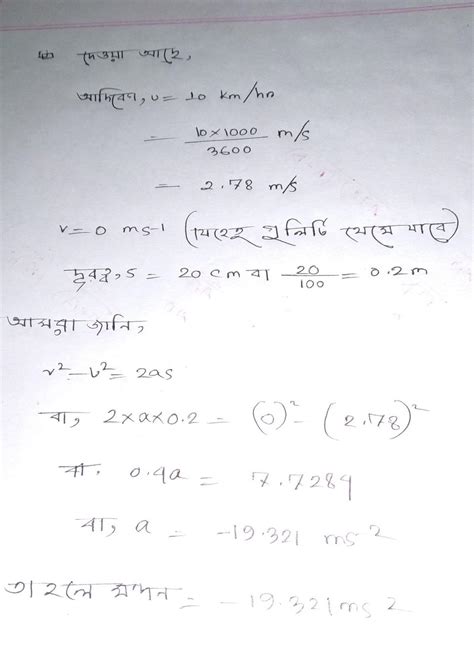 দেওয়া আছে,
আদিবেগ, u = 10 km/hr
= 10 × 1000 / 3600 m/s
= 2.78 m/s
v = 0 ms-1 (যেহেতু গুলিটি থেমে যাবে)
দূরত্ব, s = 20 cm বা 20/100 = 0.2m
আমরা জানি,
v² - u² = 2as
বা, 2×a×0.2 = (0)² - (2.78)²
বা, 0.4a = 7.7284
বা, a = -19.321 ms 2
তাহলে মন্দন = -19.321 ms 2